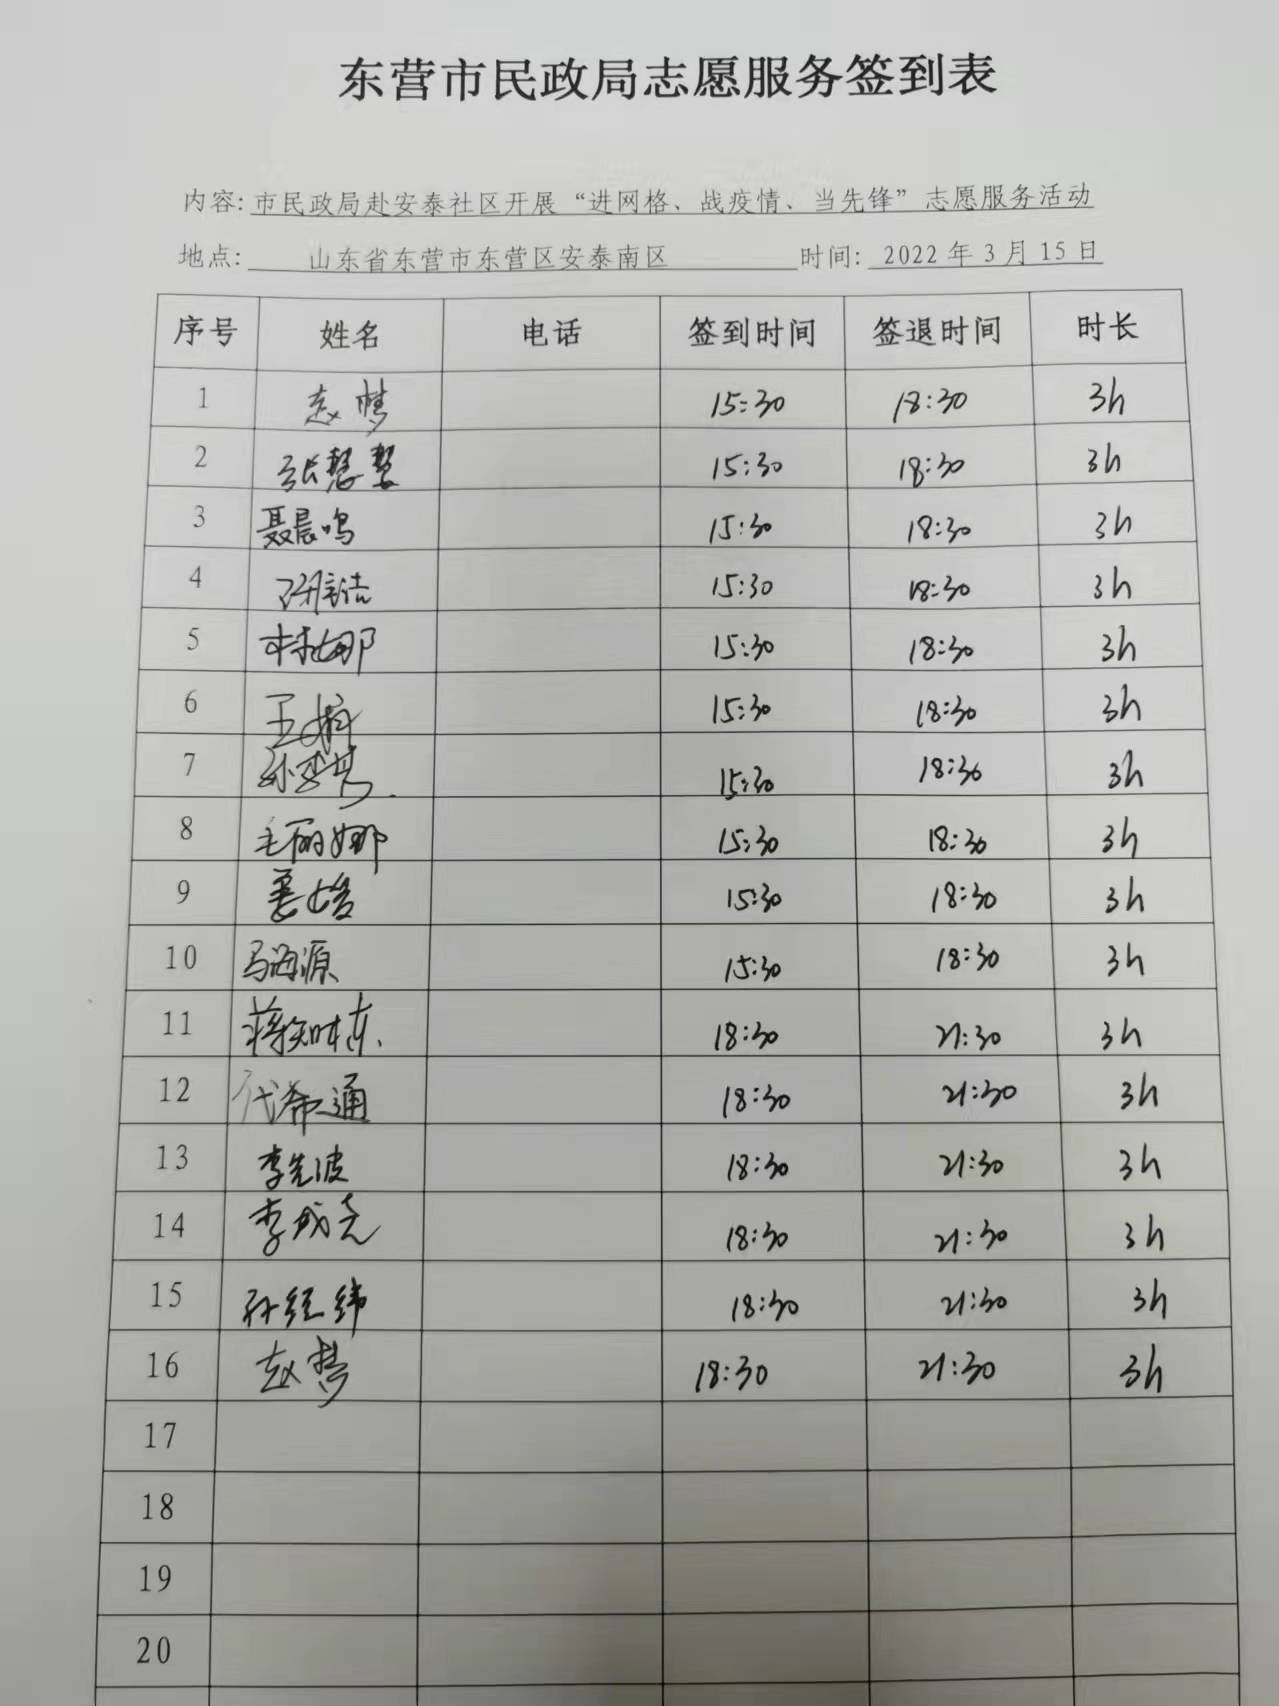 东营市民政局志愿服务签到表
内容: 市民政局赴安泰社区开展“进网格、战疫情、当先锋”志愿服务活动
地点: 山东省东营市东营区安泰南区 时间: 2022年3月15日
序号 姓名 电话 签到时间 签退时间 时长
1 赵梦 15:30 18:30 3h
2 张慧慧 15:30 18:30 3h
3 聂晨鸣 15:30 18:30 3h
4 15:30 18:30 3h
5 林娜 15:30 18:30 3h
6 王娟 15:30 18:30 3h
7 15:30 18:30 3h
8 毛丽娜 15:30 18:30 3h
9 15:30 18:30 3h
10 马海源 15:30 18:30 3h
11 18:30 21:30 3h
12 代希通 18:30 21:30 3h
13 李先波 18:30 21:30 3h
14 李成尧 18:30 21:30 3h
15 孙经纬 18:30 21:30 3h
16 赵梦 18:30 21:30 3h
17
18
19
20